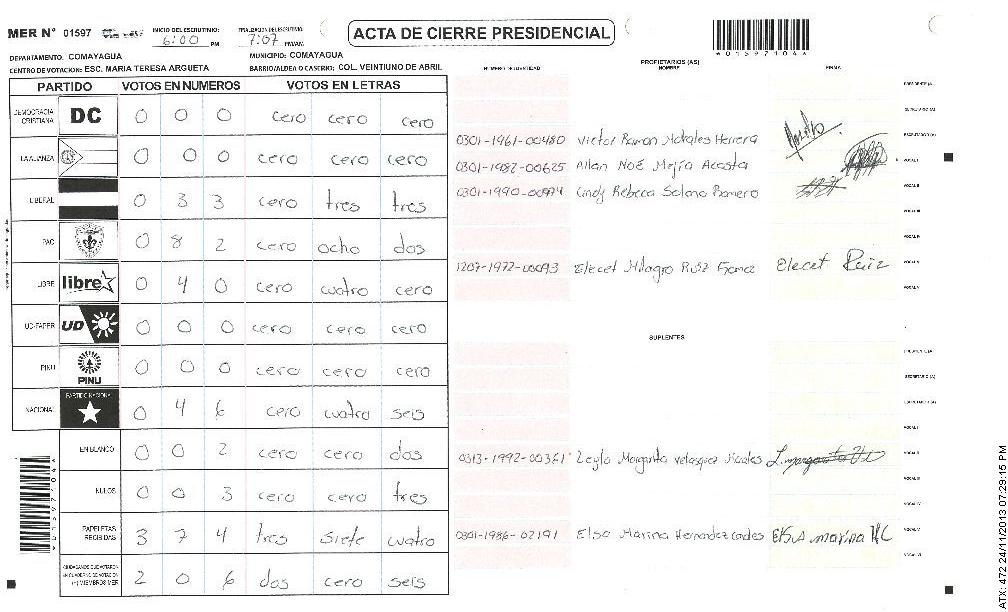 MER N° 01597 INICIO DEL ESCRUTINIO: 6:00 PM FINALIZACION DEL ESCRUTINIO: 7:07 PM/AM ACTA DE CIERRE PRESIDENCIAL
DEPARTAMENTO: COMAYAGUA MUNICIPIO: COMAYAGUA
CENTRO DE VOTACION: ESC. MARIA TERESA ARGUETA BARRIO/ALDEA O CASERIO: COL. VEINTIUNO DE ABRIL
PARTIDO VOTOS EN NUMEROS VOTOS EN LETRAS
DEMOCRACIA CRISTIANA DC 0 0 0 cero cero cero
LA ALIANZA 0 0 0 cero cero cero
LIBERAL 0 3 3 cero tres tres
PAC 0 8 2 cero ocho dos
LIBRE libre 0 4 0 cero cuatro cero
UD-FAPER UD 0 0 0 cero cero cero
PINU PINU 0 0 0 cero cero cero
NACIONAL PARTIDO NACIONAL 0 4 6 cero cuatro seis
EN BLANCO 0 0 2 cero cero dos
NULOS 0 0 3 cero cero tres
PAPELETAS RECIBIDAS 3 7 4 tres siete cuatro
CIUDADANOS QUE VOTARON
EN CUADERNO DE VOTACION
(+) MIEMBROS MER 2 0 6 dos cero seis
NUMERO DE IDENTIDAD PROPIETARIOS (AS) NOMBRE FIRMA
PRESIDENTE (A)
SECRETARIO (A)
0301-1961-00480 Victor Ramon Morales Herrera ESCRUTADOR (A)
0301-1982-00625 Allan Noé Mejía Acosta VOCAL I
0301-1990-00974 Cindy Rebeca Solano Romero VOCAL II
VOCAL III
VOCAL IV
1207-1972-00093 Elecet Milagro Ruiz Elecet Ruiz VOCAL V
SUPLENTES
PRESIDENTE (A)
SECRETARIO (A)
ESCRUTADOR (A)
VOCAL I
0313-1992-00361 Leyla Margarita Velasquez Morales VOCAL II
VOCAL III
VOCAL IV
0301-1986-02191 Elsa Marina Hernandez Elsa marina HC VOCAL V
VOCAL VI
4015971044
4015971044
ATX: 472 24/11/2013 07:29:15 PM